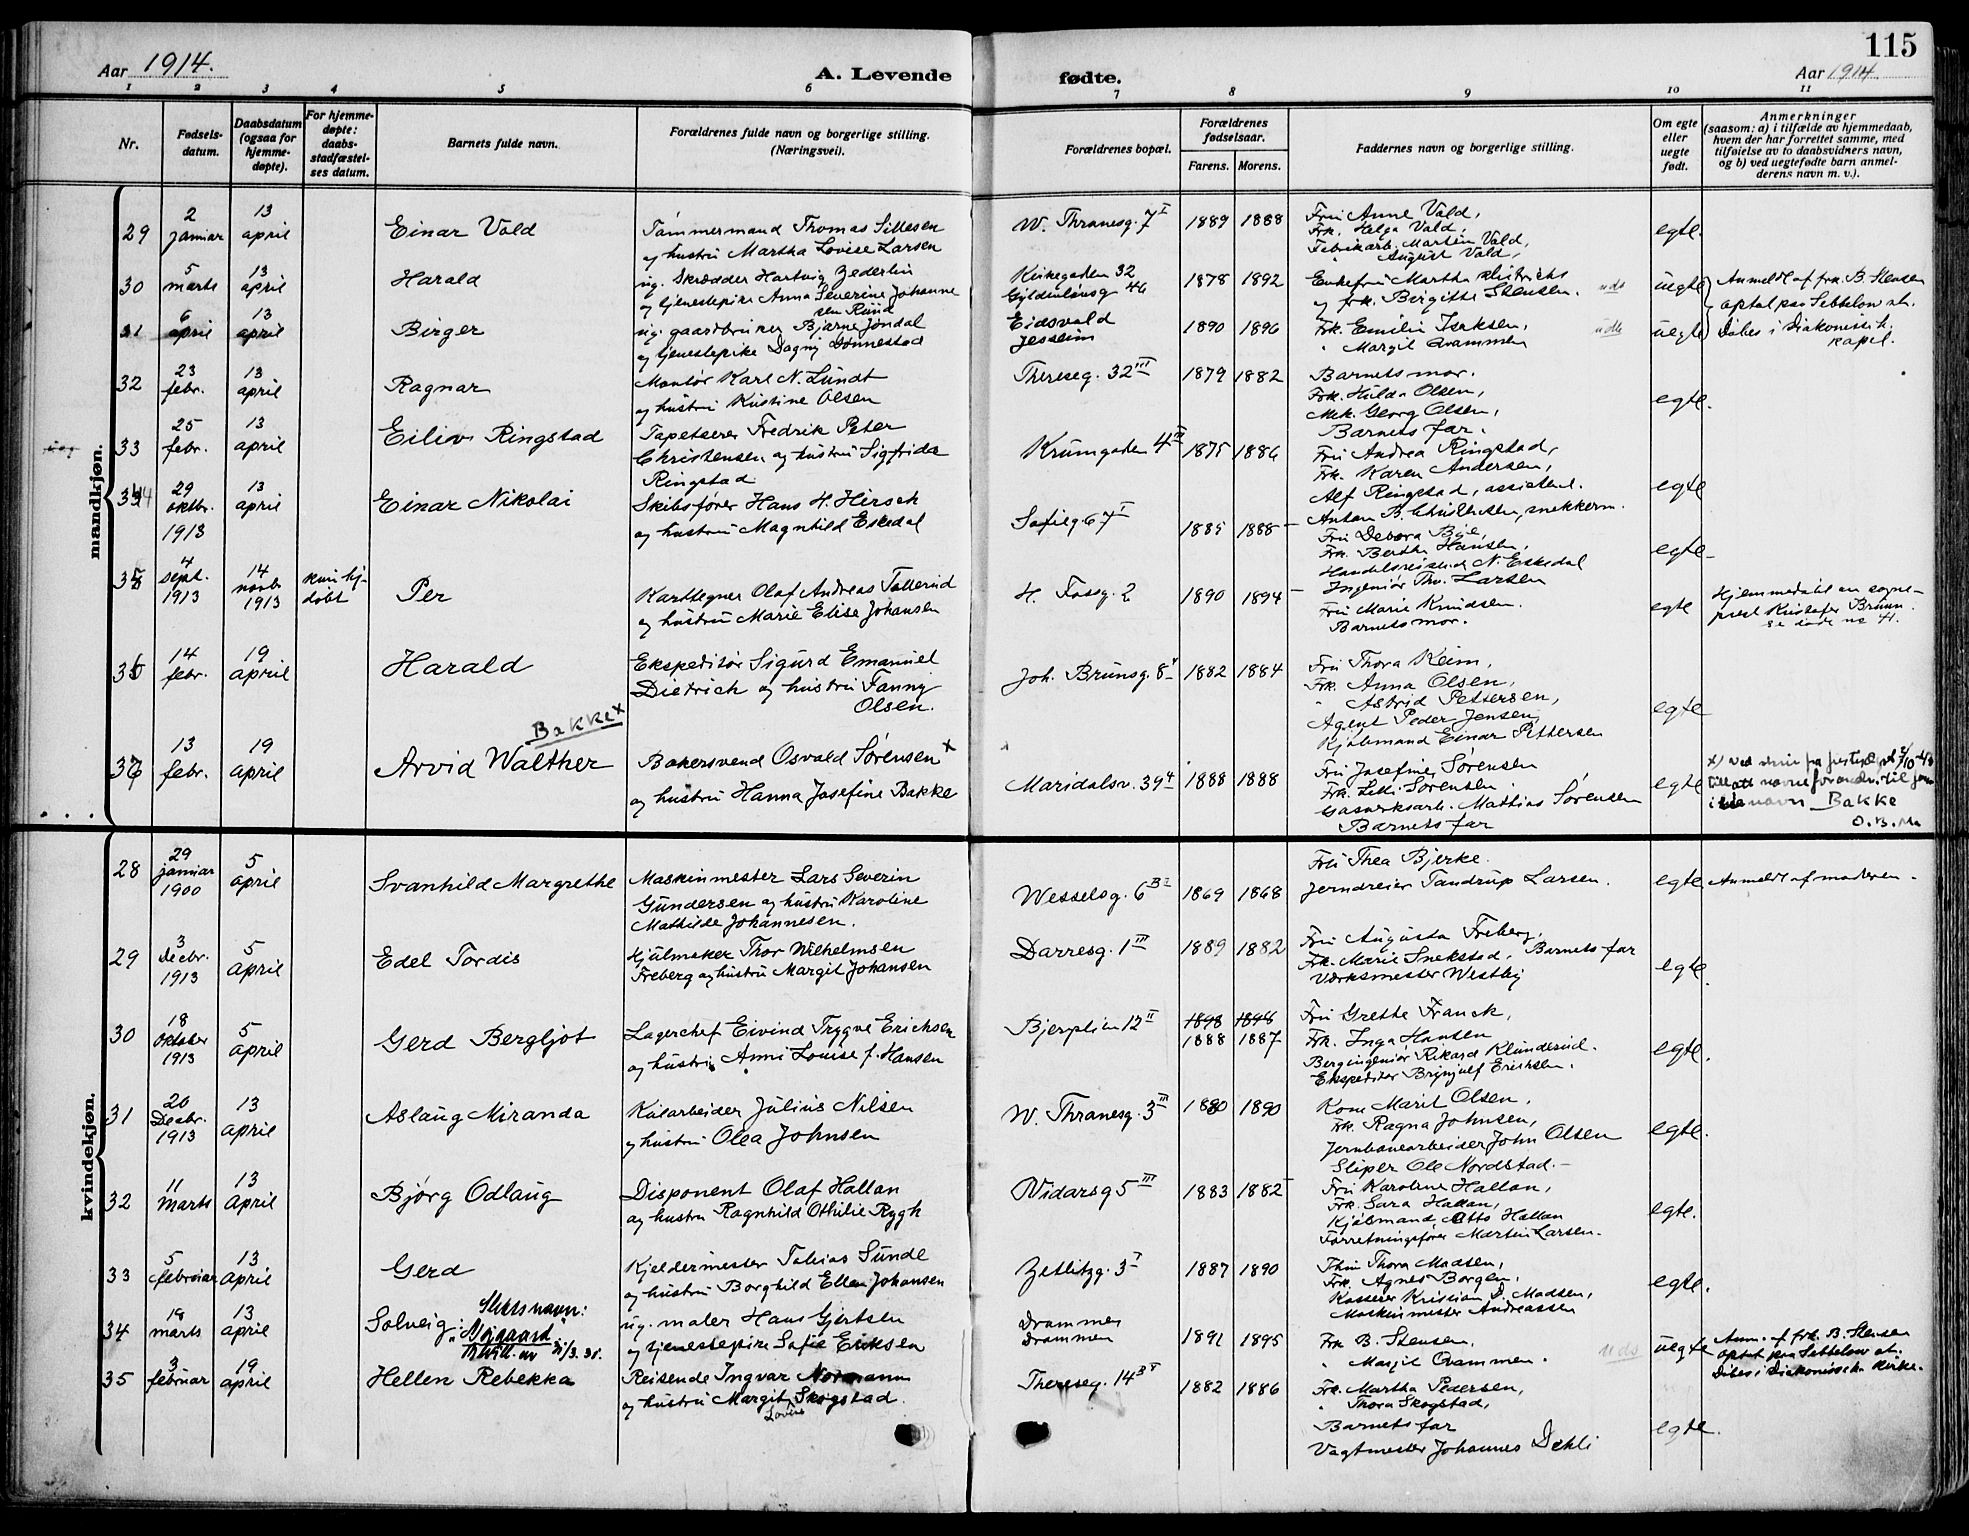 115
Aar 1914.
A. Levende
fødte.
Aar 1914
1 2 3 4 5 6 7 8 9 10 11
Nr.
Fødsels-
datum.
Daabsdatum
(ogsaa for
hjemme-
døpte).
For hjemme-
døpte:
daabs-
stadfæstel-
ses datum.
Barnets fulde navn.
Forældrenes fulde navn og borgerlige stilling.
(Næringsvei).
Forældrenes bopæl.
Forældrenes
fødselsaar.
Farens. Morens.
Faddernes navn og borgerlige stilling.
Om egte
eller
uegte
født.
Anmerkninger
(saasom: a) i tilfælde av hjemmedaab,
hvem der har forrettet samme, med
tilføielse av to daabsvidners navn,
og b) ved uegtefødte barn anmel-
derens navn m. v.).
mandkjøn.
29
2
januar
13
april
Einar Vold
Tømmermand Thomas Sillesen
og hustru Martha Lovise Larsen
W. Thranesg. 7 I
1889 1888
Fru Anne Vold,
Frk. Helga Vold,
Fabrikarb. Martin Vold,
August Vold,
egte.
30
5
marts
13
april
Harald
ug. Skrædder Hartvig Zederlin
og tjenestepike Anna Severine Johanne
Kirkegaden 32
Gyldenløvesg 46
1878 1892
Enkefru Martha
og frk. Birgitte Stensen.
uds
uegte
Anmeldt af frk. B. Stensen
31
6
april
13
april
Birger
ug. gaardbruker Bjarne Jøndal
og tjenestepike Dagny Dønnestad
Eidsvold
Jesseim
1890 1896
Frk. Emilie Isaksen,
" Margit Qvammen
uds
uegte
Døbes i Diakonissh.
kapel.
32
23
febr.
13
april
Ragnar
Montør Karl N. Lundt
og hustru Kristine Olsen
Theresesg. 32 III
1879 1882
Barnets mor.
Frk. Hilda Olsen,
Mek. Georg Olsen,
Barnets far.
egte.
33
25
febr.
13
april
Eiliv Ringstad
Tapetserer Fredrik Peter
Christensen og hustru Sigfrida
Ringstad
Krumgaden 4 III
1875 1886
Fru Andrea Ringstad,
Frk. Karen Andersen,
Alf Ringstad, assistent.
Anton B. Christensen, snekkerm.
egte
34
29
oktbr.
1913
13
april
Einar Nikolai
Skibsfører Hans H. Hirsch
og hustru Magnhild Eskedal
Sofieg 67 I
1885 1888
Fru Debora Bye,
Frk. Bertha Hansen,
Handelsreisende N. Eskedal
Ingeniør Thv. Larsen
egte
35
4
sept.
1913
14
novbr
1913
kun hj-
døbt
Per
Karttegner Olaf Andreas Tollerud
og hustru Marie Elise Johansen
H. Fossg. 2
1890 1894
Fru Marie Knudsen.
Barnets mor.
egte
Hjemmedøbt av sogne-
prest Kristofer Bruun.
Se døde no 4.
36
14
febr.
19
april
Harald
Ekspeditør Sigurd Emanuel
Dietrich og hustru Fanny
Olsen.
Joh. Brunsg. 8
1882 1884
Fru Thora Keim,
Frk. Anna Olsen,
" Astrid Pettersen,
Agent Peder Jensen,
Kjøbmand Einar Pettersen
egte
37
13
febr.
19
april
Bakke x
Arvid Walther
Bakersvend Osvald Sørensen x
og hustru Hanna Josefine Bakke
Maridalsv. 39 4
1888 1888
Fru Josefine Sørensen
Frk. Lilli Sørensen.
Gasverksarb. Mathias Sørensen
Barnets far
egte
navn Bakke
kvindekjøn.
28
29
januar
1900
5
april
Svanhild Margrethe
Maskinmester Lars Severin
Gundersen og hustru Karoline
Mathilde Johannesen.
Wesselsg. 6 B I
1869 1868
Fru Thea Bjerke.
Jerndreier Tandrup Larsen.
egte
Anmeldt af moderen.
29
3
Decbr.
1913
5
april
Edel Tordis
Hjulmaker Thor Wilhelmsen
Freberg og hustru Margit Johansen
Darresg. 1 III
1889 1882
Fru Augusta Freberg,
Frk. Marie Snekstad, Barnets far
Værksmester Westby
egte
30
18
oktober
1913
5
april
Gerd Bergljot
Lagerchef Eivind Trygve Erichsen
og hustru Anni Louise f. Hansen
12 II
1898 1898
1888 1887
Fru Grethe Franck,
Frk. Inga Hansen
Bergingeniør Rikard Klunderud.
Ekspeditør Brynjulf Erichsen.
egte.
31
20
Decbr.
1913
13
april
Aslaug Miranda
Kularbeider Julius Nilsen
og hustru Olea Johnsen
W. Thranesg. 3 III
1880 1890
Kone Marit Olsen,
Frk. Ragna Johnsen,
Jernbanearbeider John Olsen
Sliper Ole Nordstad.
egte.
32
11
marts
13
April
Bjørg Odlaug
Disponent Olaf Hallan
og hustru Ragnhild Othilie Rygh
Vidarsg 5 III
1883 1882
Fru Karoline Hallan,
Frk. Sara Hallan,
Kjøbmand Otto Hallan
Forretningsfører Martin Larsen.
egte.
33
5
februar
13
April
Gerd
Kjeldermester Tobias Sunde
og hustru Borghild Ellen Johansen
Zetlitzg. 3 I
1887 1890
Fru Thora Madsen,
Frk. Agnes Borgen,
Kasserer Kristian D. Madsen,
Maskinmester Andreassen
egte.
34
18
marts
13
april
Solveig
Slektsnavn:
ug. maler Hans Gjertsen
og tjenestepike Sofie Eriksen
Drammen
Drammen
1891 1895
Frk B. Stensen.
" Margit Qvammen.
uds
uegte
Anm. af frk. B. Stensen
Døbes i Diakonissh. kirke.
35
3
februar
19
april
Hellen Rebekka
Reisende Ingvar Normann
og hustru Margit Lovise Skogstad.
Theresesg. 14 B I
1882 1886
Frk. Martha Pedersen,
" Thora Skogstad,
Barnets far
Vagtmester Johannes Dehli
egte.